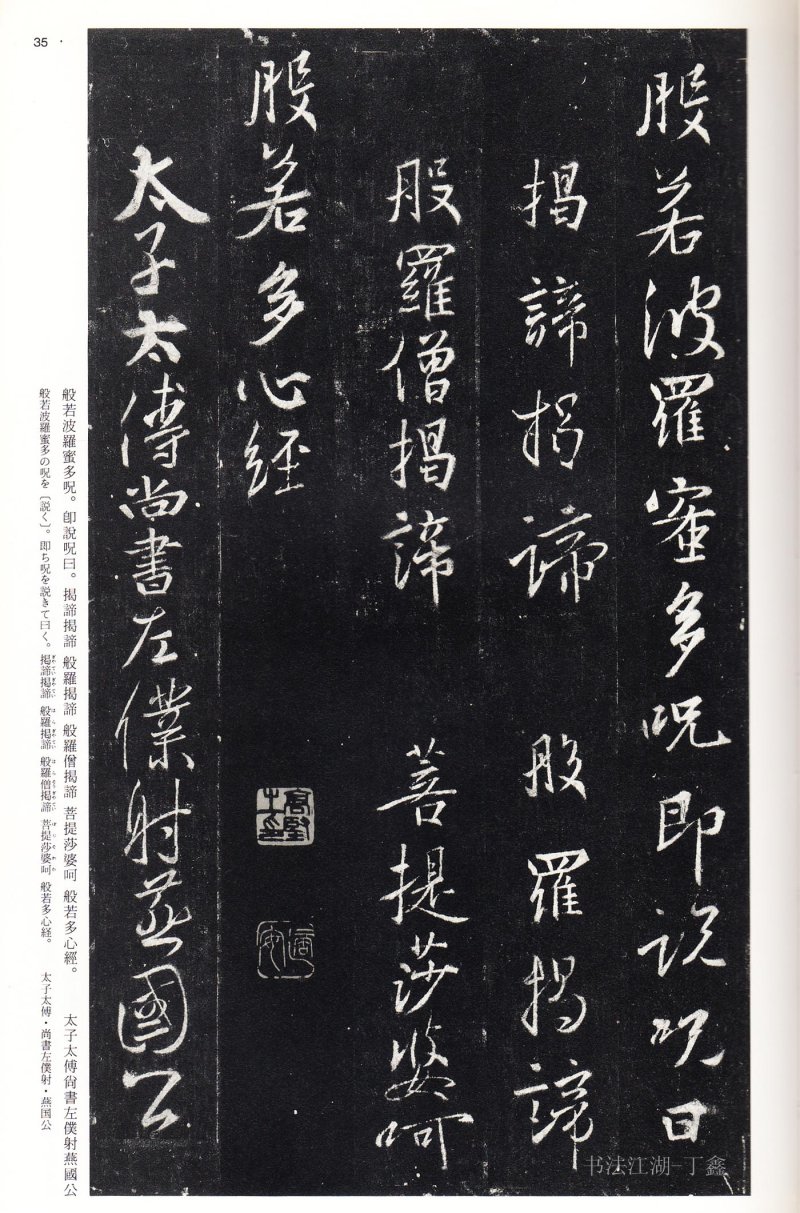 35
般若波羅蜜多呪即説呪曰
揭諦揭諦 般羅揭諦
般羅僧揭諦 菩提莎婆呵
般若多心經
太子太傅尚書左僕射燕國公
般若波羅蜜多呪。卽說呪曰。揭諦揭諦 般羅揭諦 般羅僧揭諦 菩提莎婆呵 般若多心經。 太子太傅尙書左僕射燕國公
般若波羅蜜多の呪を〔説く〕。即ち呪を説きて曰く。掲諦掲諦 般羅掲諦 般羅僧掲諦 菩提莎婆呵 般若多心経。 太子太傅・尚書左僕射・燕国公
书法江湖-丁鑫